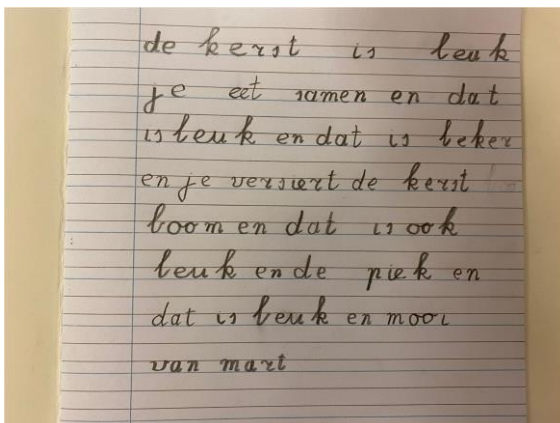 de kerst is leuk
je eet samen en dat
is leuk en dat is leker
en je versiert de kerst
boom en dat is ook
leuk en de piek en
dat is leuk en mooi
van mart